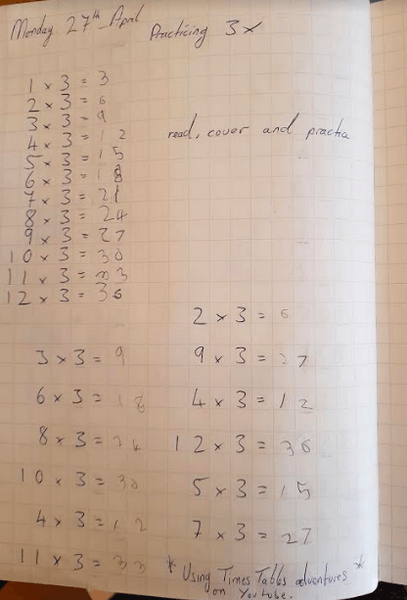 Monday 27th April
Practicing 3x
1 x 3 = 3
2 x 3 = 6
3 x 3 = 9
4 x 3 = 12
5 x 3 = 15
6 x 3 = 18
7 x 3 = 21
8 x 3 = 24
9 x 3 = 27
10 x 3 = 30
11 x 3 = 33
12 x 3 = 36
read, cover and practice
3 x 3 = 9
6 x 3 = 18
8 x 3 = 24
10 x 3 = 30
4 x 3 = 12
11 x 3 = 33
2 x 3 = 6
9 x 3 = 27
4 x 3 = 12
12 x 3 = 36
5 x 3 = 15
7 x 3 = 27
* Using Times Tables adventures *
on Youtube.